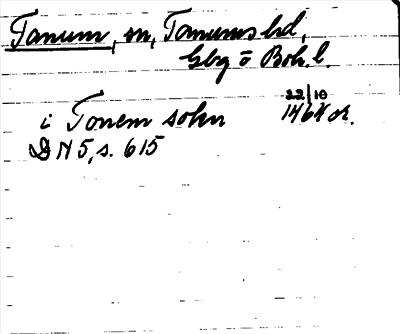 Tanum, sn, Tanums hd,
Gbg o Boh. l.
i Tonem sokn 22/10 1464 or.
DN 5, s. 615